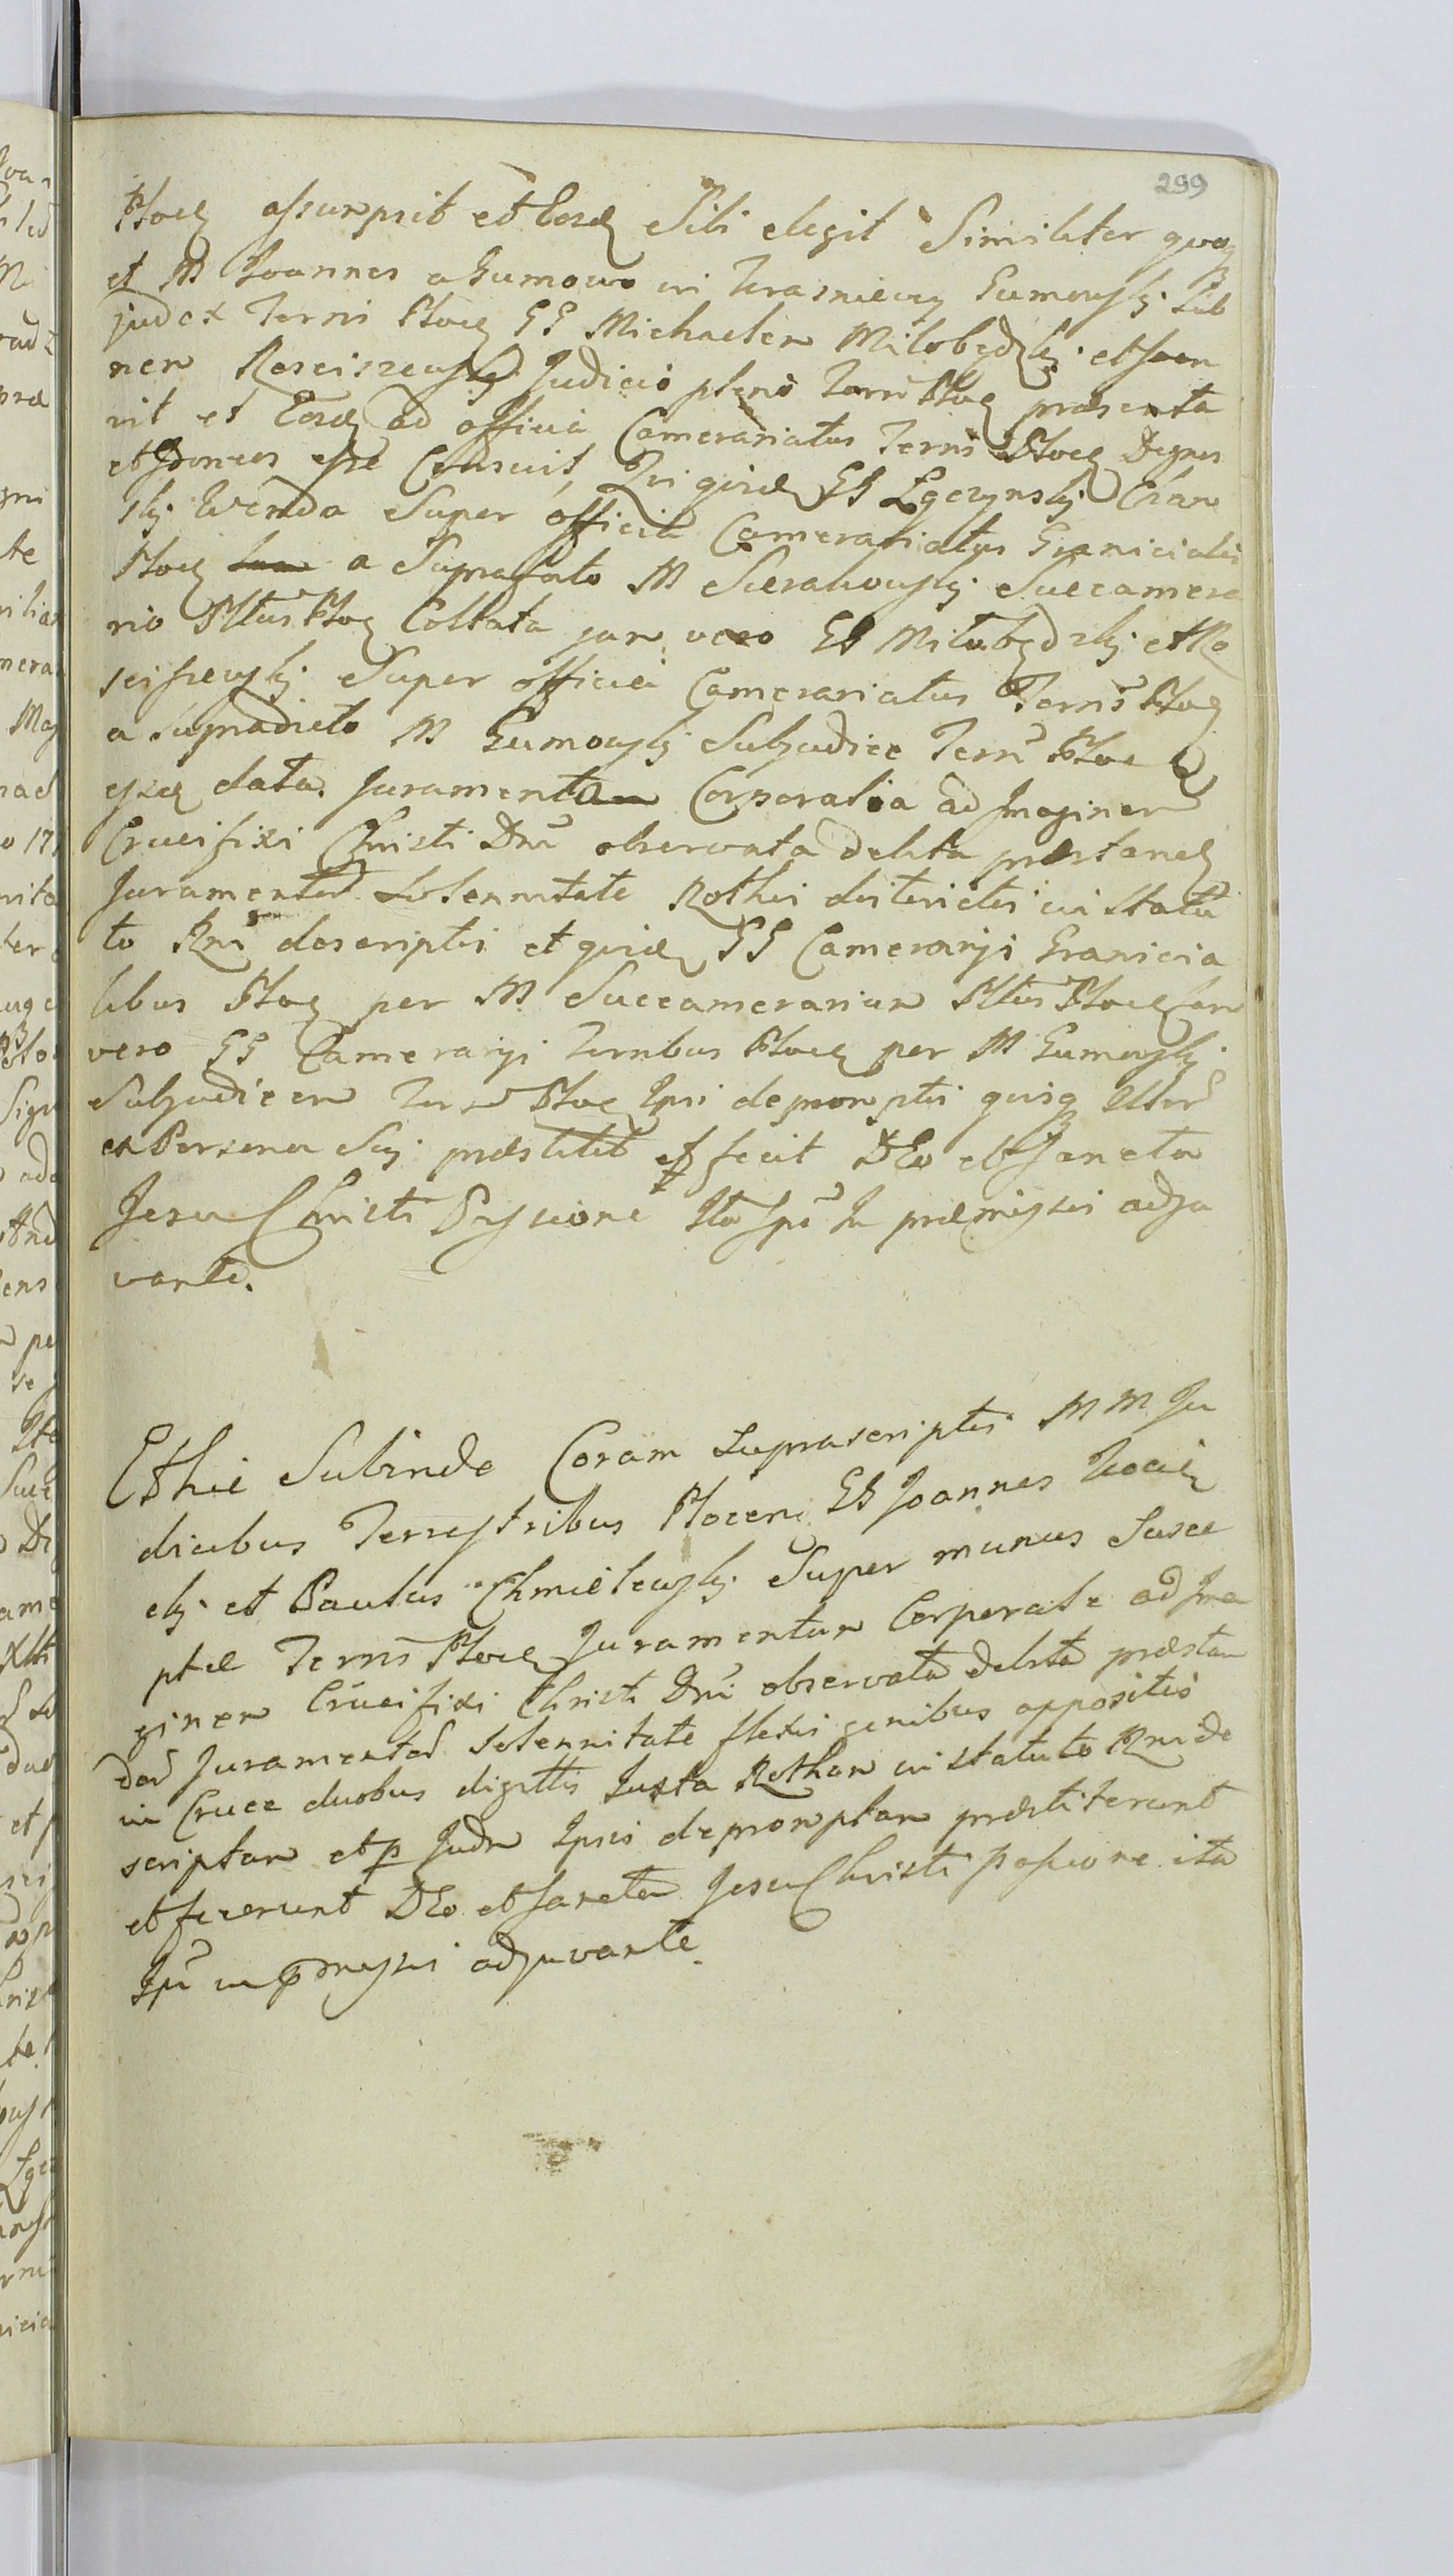 299
Plocen assumpsit et Eosdem Sibi elegit Similiter quoque
et M Joannes a Gumowo in Krasniewy Gumowskj Sub
judex Terris Plocen GG Michaelem Miłobędzkj et Joan
nem Rosciszewskj Judicio pleno Terri Plocen praesenta
vit et Eosdem ad officia Camerariatus Terris Plocen Dignos
et Idoneos esse Censuit, Qui quidem GG Łgczynskj
skj Wenda Super officia Camerariatus Granicialis
Plocen a Suprafato M Sierakowskj Succamera
rio Pltus Plocen Collata jam vero GG Miłobędzkj et Ro
sciszewskj Super officia Camerariatus Terris Plocen
a supradicto M Gumowskj Subjudice Terris Plocen
data Juramenta Corporalia ad Imaginem
Crucifixi Christi Dni observata debita praestand
Juramentor Solennitate Rothis districtis in statu
to Rni descriptis et quidem GG Camerarijs Granicia
libus Plocen per M Succamerarium Pltus Plocen jam
vero GG Camerarijs Terribus Plocen per M Gumowskj
Subjudicem Terris Plocen Ipsis depromptis quisque Illor
ex Persona Suj praestitit et fecit DEo et Sancta
Jesu Christi Passione Ita Ipsi In praemissis adju
vante.
Et hic Subinde Coram Suprascriptis MM Ju
dicibus Terrestribus Plocen GG Joannes
ckj et Paulus Chmielewskj Super munus Susce
ptae Terris Plocen Juramentum Corporale ad Ima
ginem Crucifixi Christi Dni observata debita praestan
dor Juramentor Solennitate flexis genibus appositis
in Cruce duobus digittis Juxta Rotham in statuto Rni de
scriptam et p Judm Ipsis depromptam praestiterunt
et fecerunt DEo et Sancta Jesu Christi Passione ita
Ipsi in praemissis adjuvante.